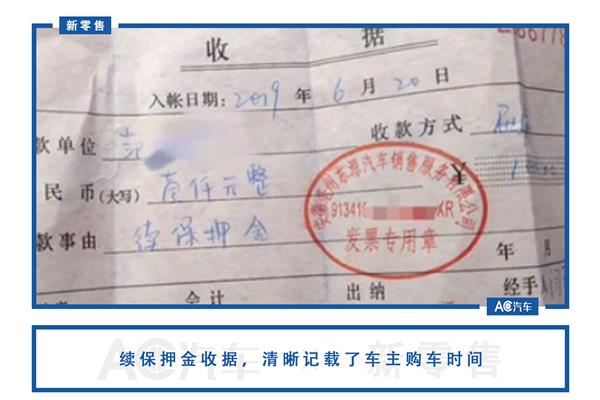 新零售
收 据
入帐日期：2019 年 6 月 20 日
款单位
收款方式
民 币(大写) 壹仟元整
¥
款事由 续保押金
汽车销售服务有限公司
913410 XR
发票专用章
年 月
会 计
出 纳
经手人
AC汽车
续保押金收据，清晰记载了车主购车时间
AC汽车 新零售